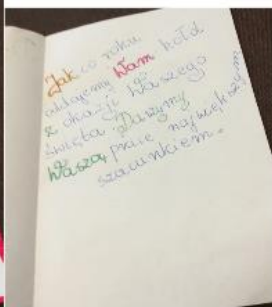 Jak co roku
oddajemy Wam hołd
z okazji Waszego
święta. Darzymy
Waszą pracę największym
szacunkiem.